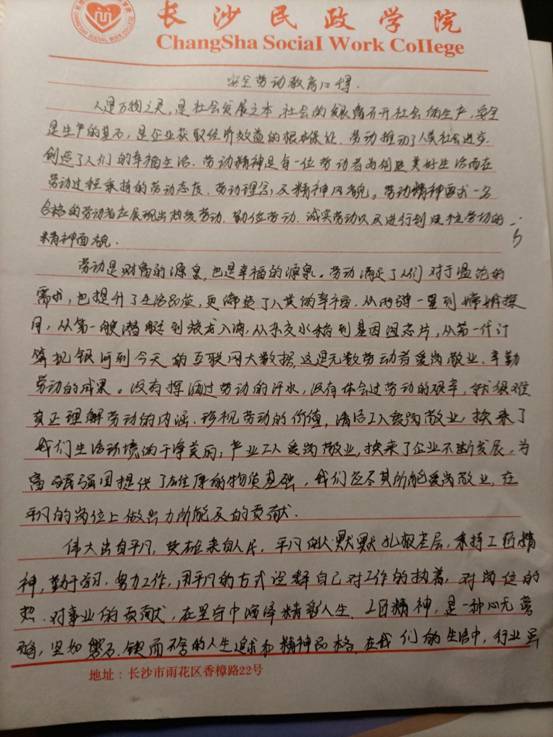 长沙民政学院
ChangSha Social Work College
安全劳动教育心得
人是万物之灵,是社会发展之本,社会的发展离不开社会的生产,安全
是生产的基石,是企业获取经济效益的根本保证。劳动推动了人类社会进步,
创造了人们的幸福生活。劳动精神是每一位劳动者为创造美好生活而在
劳动过程秉持的劳动态度、劳动理念及精神风貌。劳动精神要求一名
合格的劳动者应展现出热爱劳动、勤俭劳动、诚实劳动以及进行创造性劳动的
精神面貌。
劳动是财富的源泉,也是幸福的源泉。劳动满足了人们对于温饱的
需求,也提升了生活品质,更缔造了人类的幸福。从两弹一星到嫦娥探
月,从第一艘潜艇到蛟龙入海,从杂交水稻到基因图芯片,从第一代计
算机银河到今天的互联网大数据,这是无数劳动者爱岗敬业、辛勤
劳动的成果。没有挥洒过劳动的汗水,没有体会过劳动的艰辛,就很难
真正理解劳动的内涵、珍视劳动的价值,清洁工人爱岗敬业,换来了
我们生活环境的干净美丽;产业工人爱岗敬业,换来了企业不断发展,为
富强国提供了雄厚的物质基础,我们应尽其所能爱岗敬业,在
平凡的岗位上做出力所能及的贡献。
伟大出自平凡,英雄来自人民,平凡的人默默默扎根基层,秉持工匠精
神,勤于学习、努力工作,用平凡的方式诠释自己对工作的执着,对岗位的
热,对事业的贡献,在坚守中演绎精彩人生。工匠精神,是一种心无旁
骛,坚如磐石、锲而不舍的人生追求和精神品格,在我们的生活中,行业
地址:长沙市雨花区香樟路22号